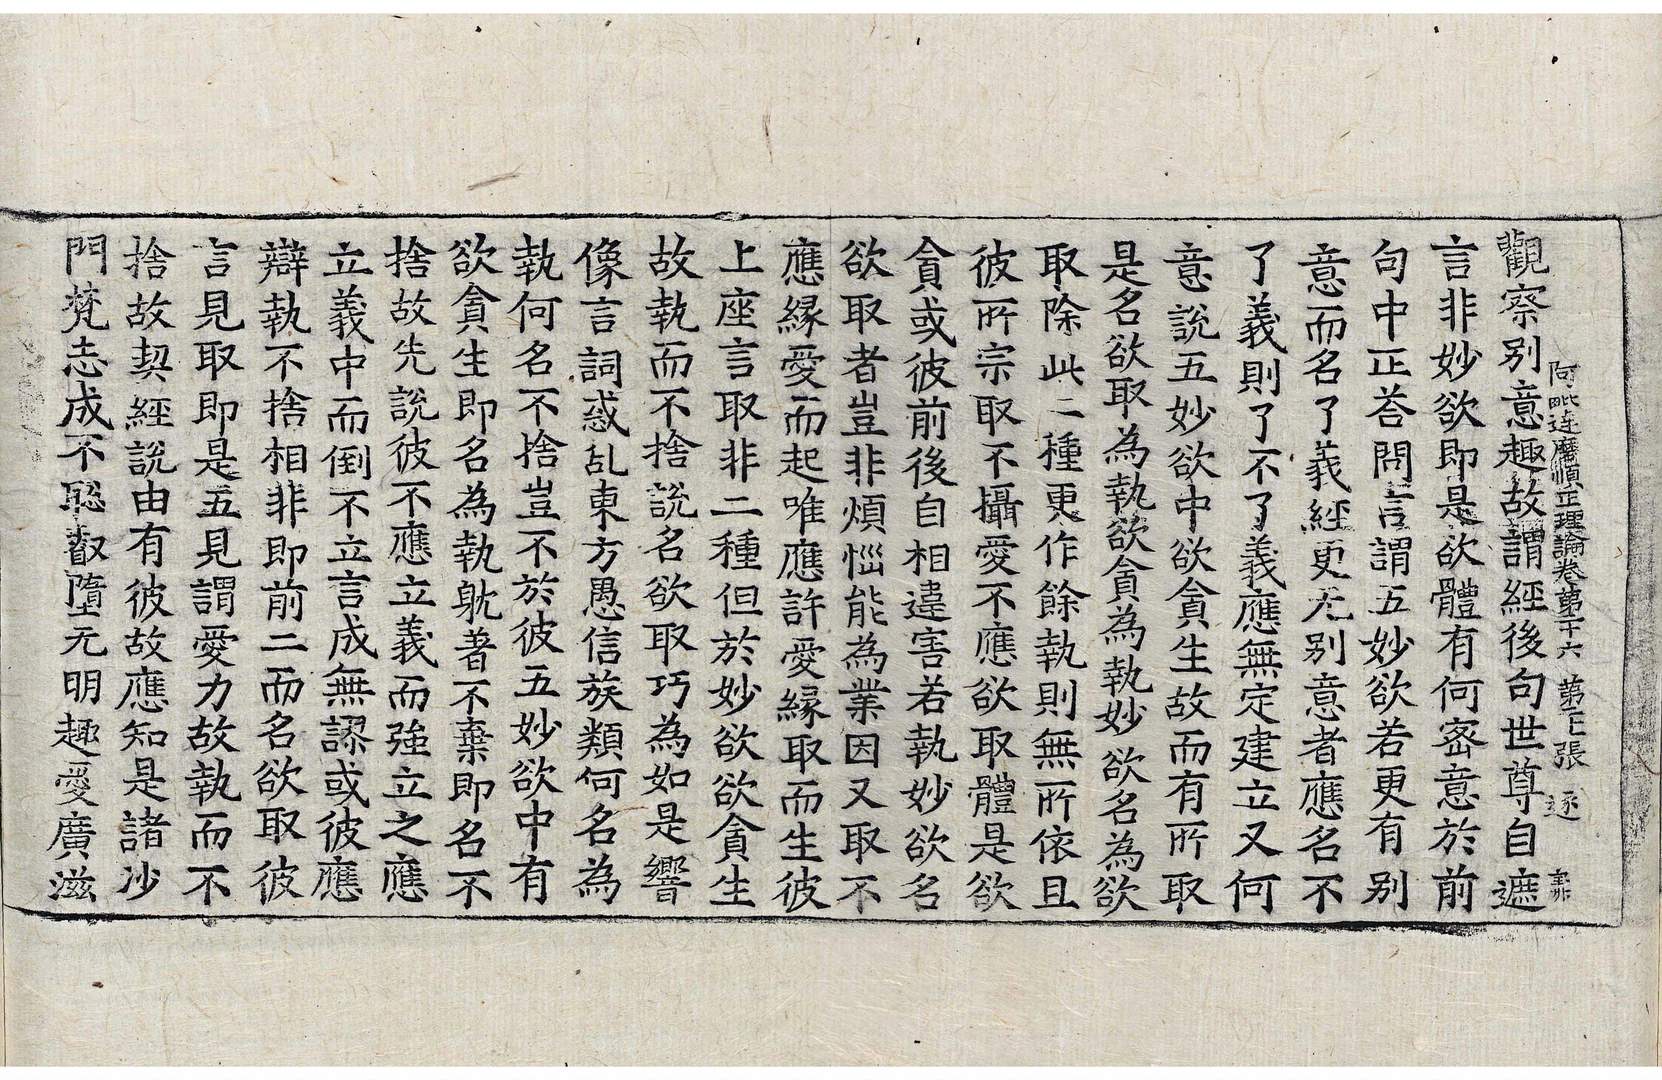 阿毗達磨順正理論卷第二十六 第二七張 逐
觀察別意趣故謂經後句世尊自遮
言非妙欲即是欲體有何密意於前
句中正荅問言謂五妙欲若更有別
意而名了義經更无別意者應名不
了義則了不了義應無定建立又何
意說五妙欲中欲貪生故而有所取
是名欲取為執欲貪為執妙欲名為欲
取除此二種更作餘執則無所依且
彼所宗取不攝愛不應欲取體是欲
貪或彼前後自相違害若執妙欲名
欲取者豈非煩惱能為業因又取不
應緣愛而起唯應許愛緣取而生彼
上座言取非二種但於妙欲欲貪生
故執而不捨說名欲取巧為如是響
像言詞惑乱東方愚信族類何名為
執何名不捨豈不於彼五妙欲中有
欲貪生即名為執躭著不棄即名不
捨故先說彼不應立義而強立之應
立義中而倒不立言成無謬或彼應
辯執不捨相非即前二而名欲取彼
言見取即是五見謂愛力故執而不
捨故契經說由有彼故應知是諸沙
門梵志成不聡叡墮无明趣愛廣滋